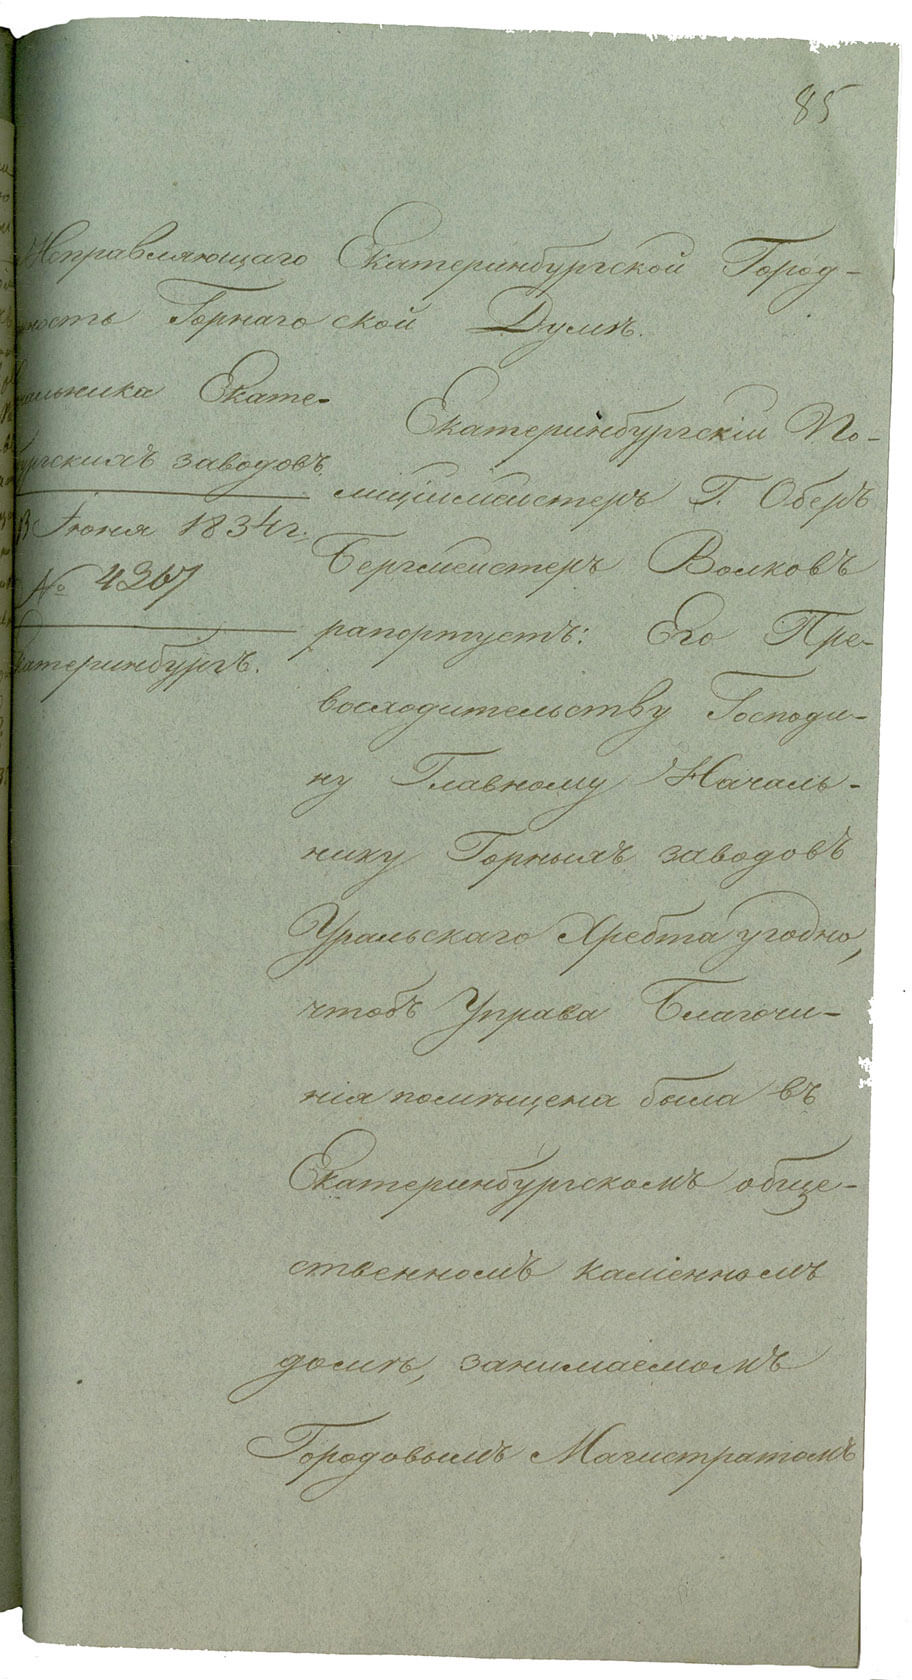 85
Исправляющаго
ность Горнаго
чальника Екате-
бургскихъ заводовъ
13 Июня 1834 г:
№ 4367
катеринбургъ.
Екатеринбургской Город-
ской Думѣ.
Екатеринбургскій По-
лиціймейстеръ Г. Оберъ
Бергмейстеръ Волковъ
рапортуетъ: Его Пре-
восходительству Господи-
ну Главному Началь-
нику Горныхъ заводовъ
Уральскаго Хребта угодно,
чтобъ Управа Благочи-
нія помѣщена была въ
Екатеринбургскомъ обще-
ственномъ каменномъ
домѣ, занимаемомъ
Городовымъ Магистратомъ